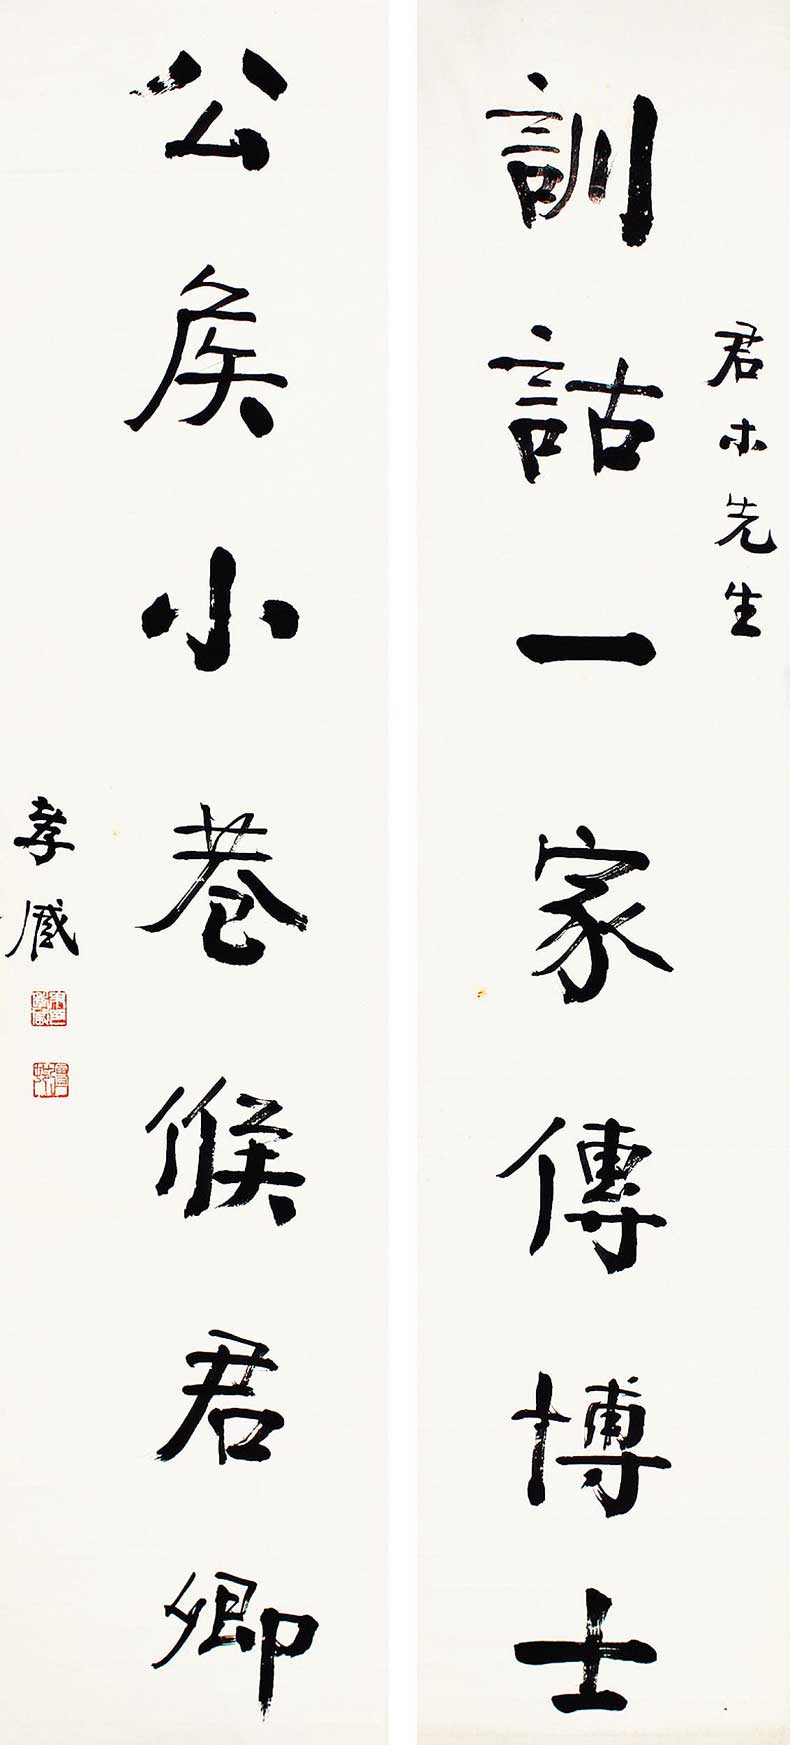 君木先生
訓詁一家傳博士
公矦小巷候君卿
孝臧